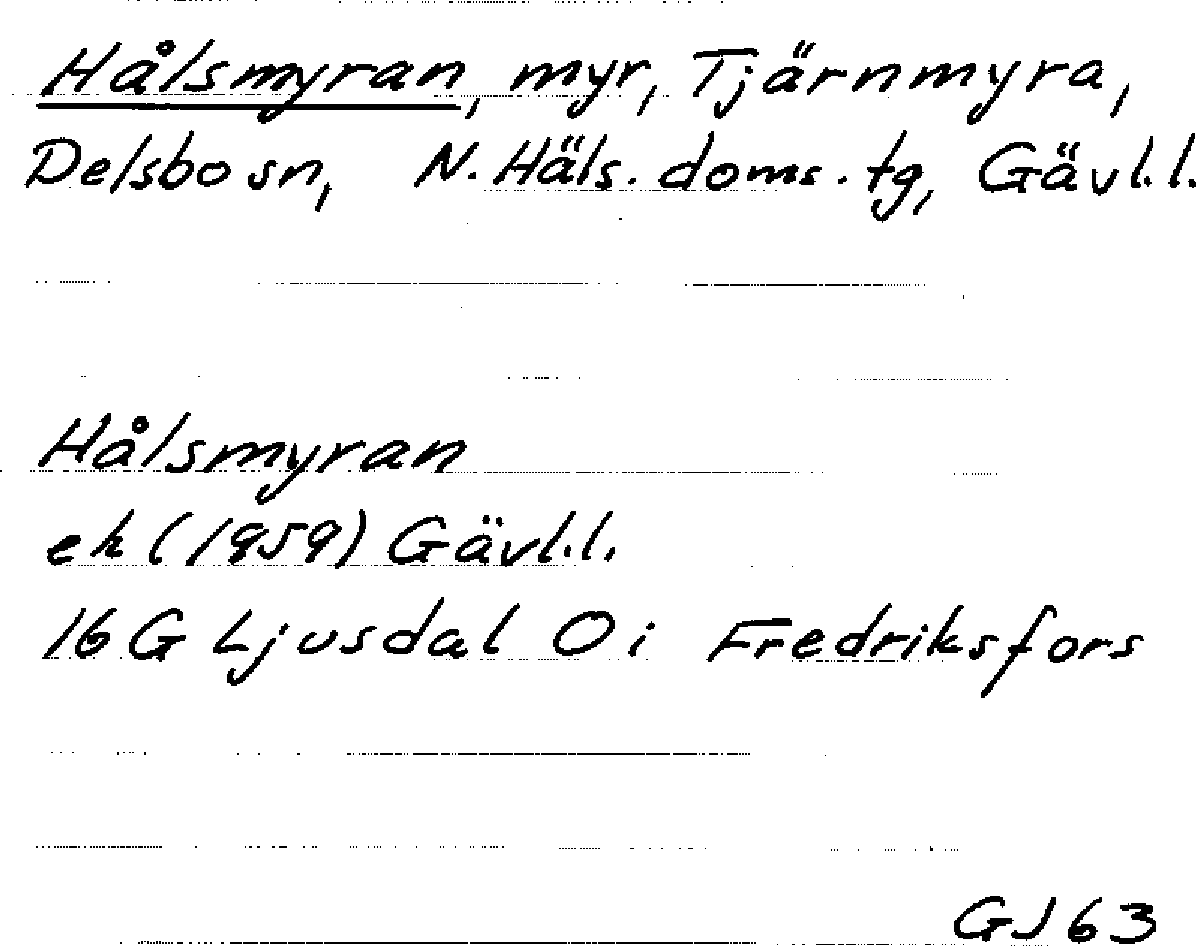 Hålsmyran, myr, Tjärnmyra,
Delsbo sn, N. Häls. doms. tg, Gävl. l.
Hålsmyran
ek (1959) Gävl. l.
16 G Ljusdal O i Fredriksfors
GJ 63